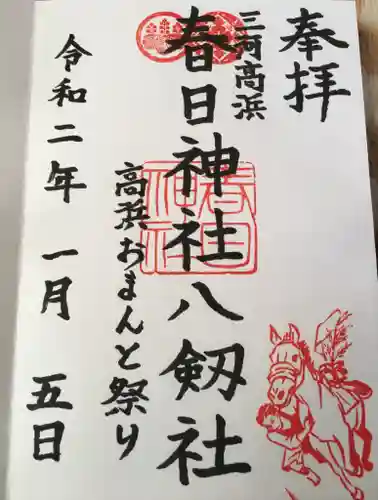 奉拝
三河高浜
春日神社八剱社
高浜おまんと祭り
令和二年一月五日
春日神社